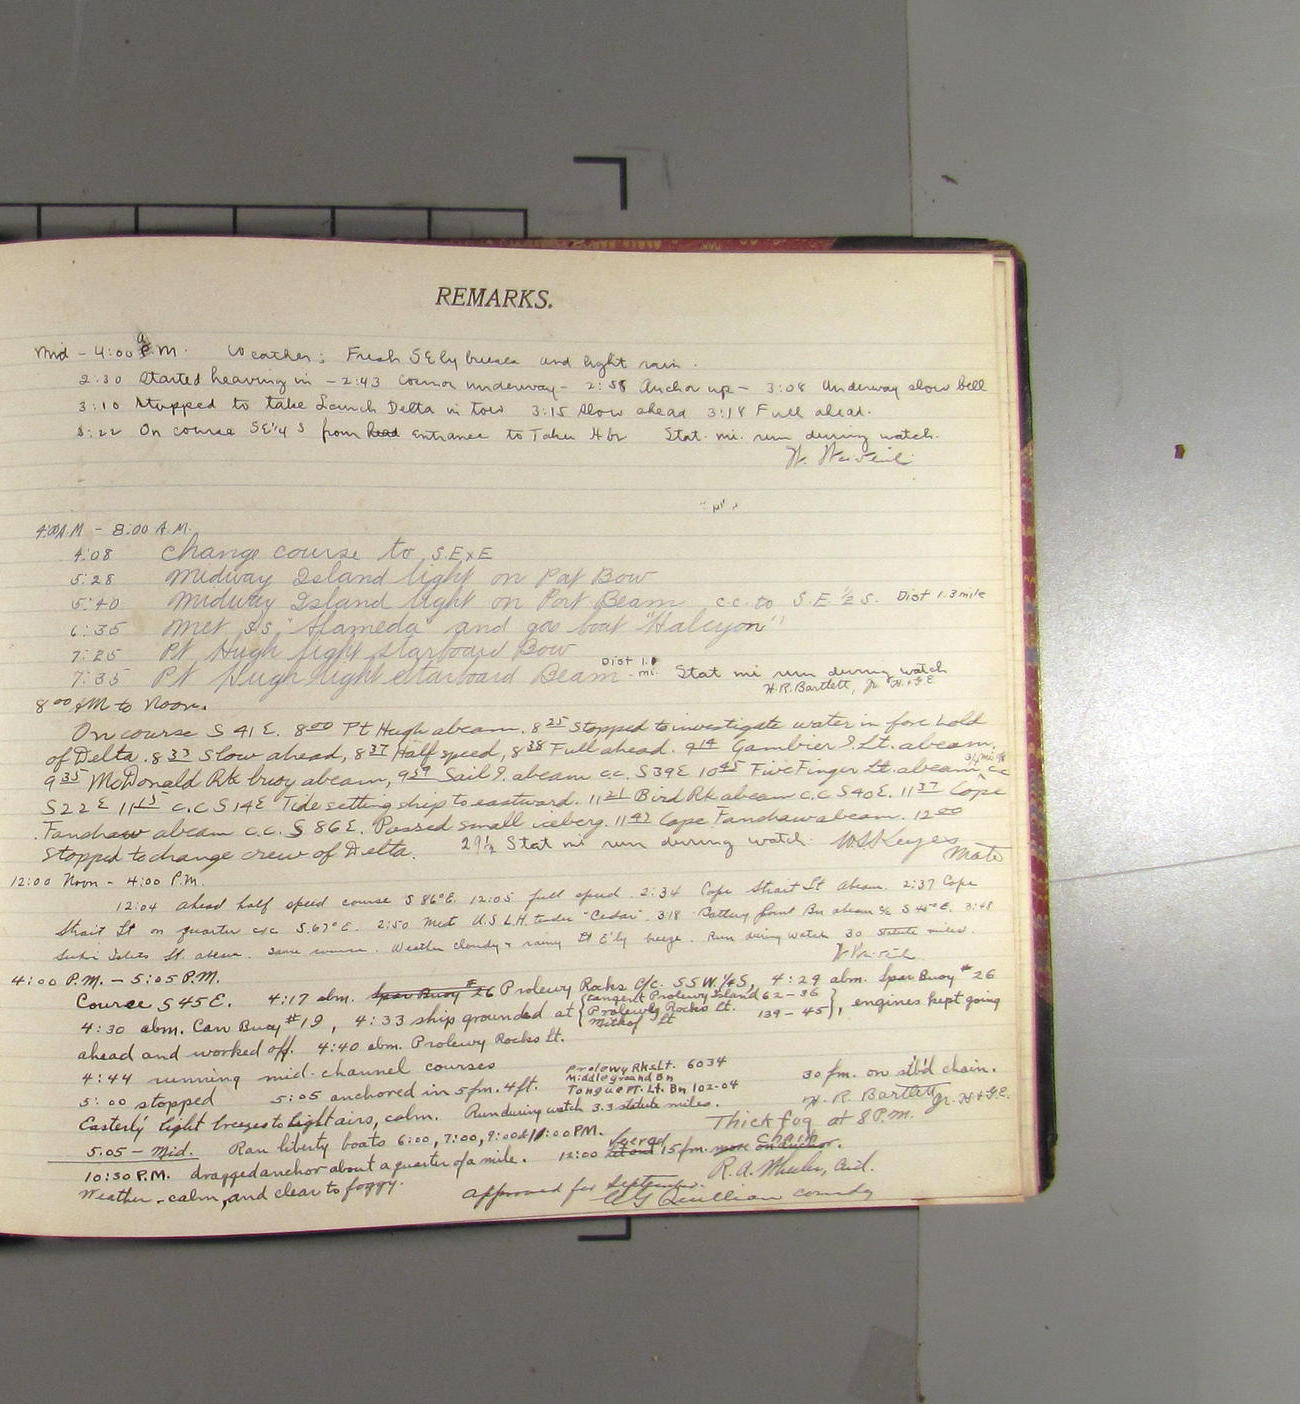 REMARKS.
Mid - 4:00 a.M. Weather: Fresh SEly breeze and light rain.
2:30 Started heaving in - 2:43 underway - 2:58 Anchor up - 3:08 Underway slow bell
3:10 Stopped to take Launch Delta in tow 3:15 Slow ahead 3:18 Full ahead.
3:22 On course SE¼S from head entrance to Taku Hbr Stat. mi. run during watch.
4:00A.M - 8.00 A.M.
4:08 Change course to S.E x E
5:28 Midway Island light on Port Bow
5:40 Midway Island light on Port Beam c.c. to S.E. ½ S. Dist 1.3 mile
6:35 Met S.S. "Alameda" and gas boat "Halcyon"
7:25 Pt Hugh light starboard Bow
7:35 Pt Hugh light starboard Beam Dist 1.0 mi. Stat mi run during watch
H.R. Bartlett, Jr. H. & G. E.
8 00 AM to Noon.
On course S 41 E. 8 00 Pt Hugh abeam. 8 25 Stopped to investigate water in fore hold
of Delta. 8 33 Slow ahead, 8 37 Half speed, 8 38 Full ahead. 9 14 Gambier I. Lt. abeam.
9 35 McDonald Rk buoy abeam, 9 59 Sail I. abeam cc. S39E 10 45 Five Finger Lt. abeam, cc
S22E 11 15 c.c S14E Tide setting ship to eastward. 11 21 Bird Rk abeam c.c S40E. 11 37 Cope
Fanshaw abeam c.c. S 86E. Passed small iceberg. 11 47 Cape Fanshaw abeam. 12 00
Stopped to change crew of Delta. 29½ Stat mi run during watch. W.S. Keyes
Mate
12:00 Noon - 4:00 P.M.
12:04 Ahead half speed course S 86° E. 12:05 full speed. 2:34 Cape Strait Lt Abeam. 2:37 Cape
Strait Lt on quarter c/c S.67° E. 2:50 Met U.S.L.H. tender "Cedar". 318 Battery Point Bn abeam c/c S 45° E. 3:48
Lt. abeam. Same course. Weather cloudy & rainy Lt E'ly breeze. Run during watch 30 statute miles.
4:00 P.M. - 5:05 P.M.
Course S 45 E. 4:17 abm. Spar Buoy #26 Prolewy Rocks c/c. SSW.¼S, 4:29 abm. Spar Buoy #26
4:30 abm. Can Buoy #19, 4:33 ship grounded at {tangent Prolewy Island 62-36 Prolewy Rocks Lt. 139-45 Mitkof Lt}, engines kept going
ahead and worked off. 4:40 abm. Prolewy Rocks Lt.
4:44 running mid-channel courses
5:00 stopped 5:05 anchored in 5fm. 4ft. Prolewy Rks Lt. 6034 Middleground Bn Tongue Pt. Lt. Bn 102-04 30 fm. on stb'd chain.
H. R. Bartlett, Jr. H & G. E.
Easterly light breezes to light airs, calm. Run during watch 3.3 statute miles.
Thick fog at 8 P.m.
5.05 - Mid. Ran liberty boats 6:00, 7:00, 9:00 & 11:00 PM. 12:00 Veered 15 fm. more chain on anchor.
10:30 P.M. dragged anchor about a quarter of a mile.
R. A. Wheeler, Aid.
Weather - calm, and clear to foggy.
Approved for September.
Quillian comdg